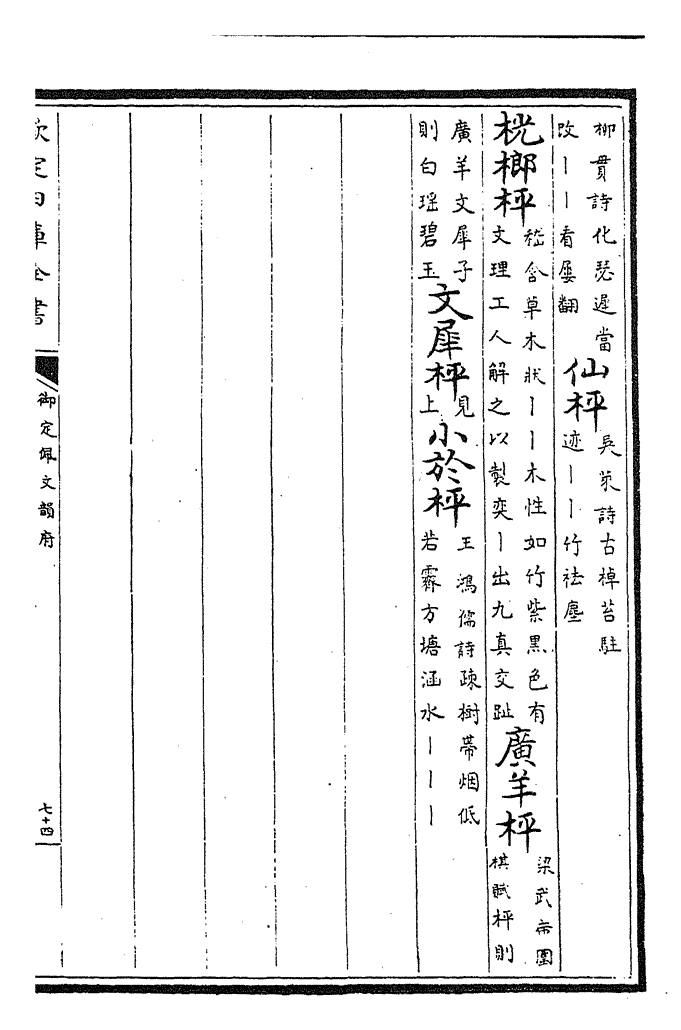 柳貫詩化瑟遲當
改丨丨看屢翻
仙枰
吳萊詩古棹苔駐
迹丨丨竹祛塵
桄榔枰
嵇含草木狀丨丨木性如竹紫黑色有
文理工人解之以製奕丨出九真交趾
廣羊枰
梁武帝圍
棋賦枰則
廣羊文犀子
則白瑶碧玉
文犀枰
見
上
小於枰
王鴻儒詩疎樹帶烟低
若霽方塘涵水丨丨丨
欽定四庫全書
御定佩文韻府
七十四